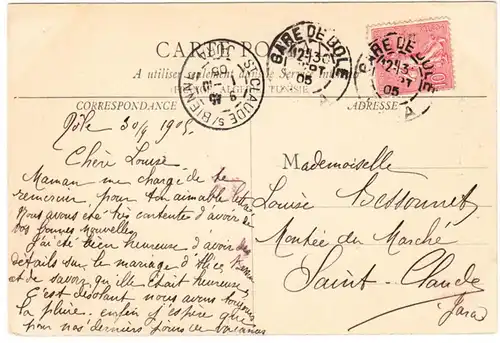 CARTE POSTALE
A utiliser seulement dans le Service Intérieur
FRANCE, ALGÉRIE, TUNISIE
CORRESPONDANCE
ADRESSE
GARE DE DOLE
12H30
05
GARE DE DOLE
12H30
05
ST CLAUDE S/BIENNE
JURA
05
10
Dôle 30/9 1905.
Chère Louise
Maman me charge de te
remercier pour ton aimable lettre
Nous avons été très contentes d'avoir de
vos bonnes nouvelles
J'ai été bien heureuse d'avoir des
détails sur le mariage d'Alice
et de savoir qu'elle était heureuse
C'est désolant nous avons toujours
la pluie. enfin j'espère que
pour nos derniers jours de vacances
Mademoiselle
Louise Bessonnet
Montée du Marché
Saint-Claude
(Jura)